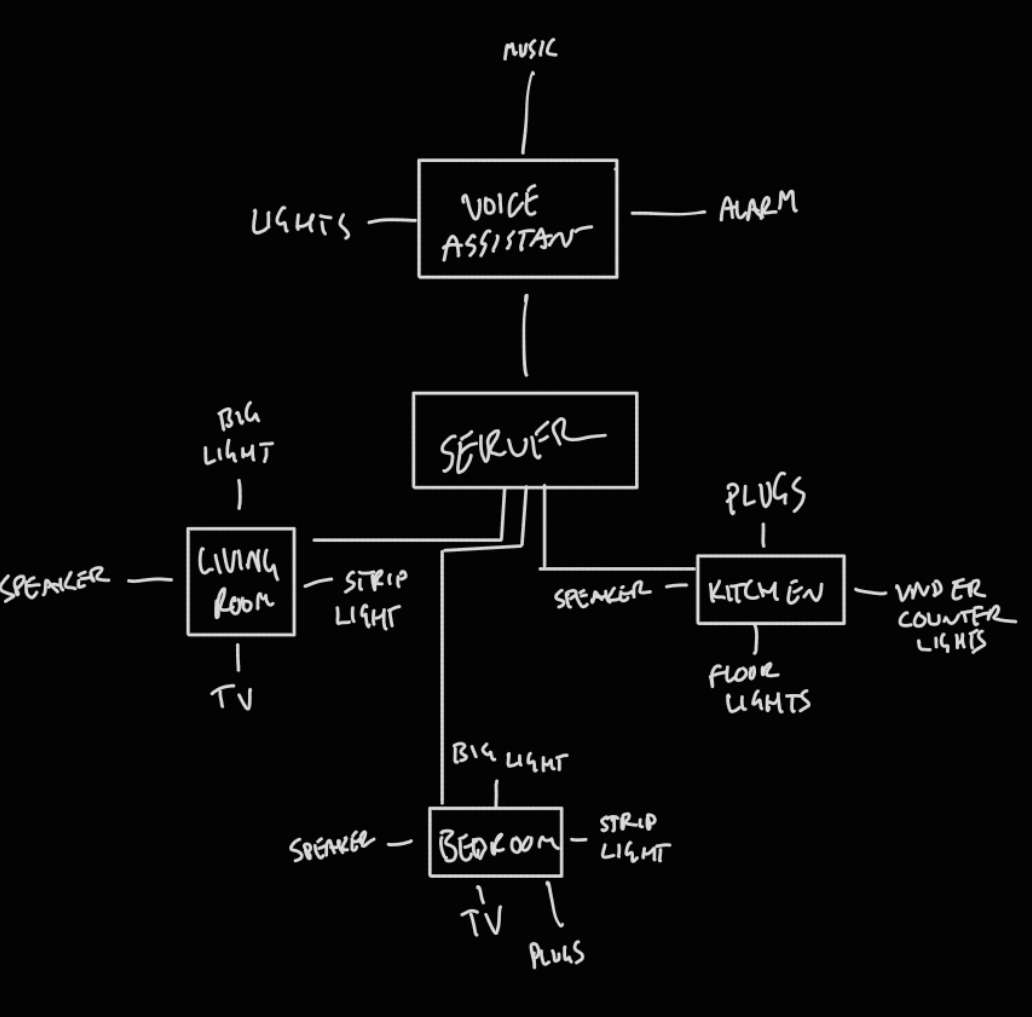 MUSIC
VOICE
ASSISTANT
LIGHTS
ALARM
SERVER
BIG
LIGHT
LIVING
ROOM
SPEAKER
STRIP
LIGHT
TV
PLUGS
SPEAKER
KITCHEN
UNDER
COUNTER
LIGHTS
FLOOR
LIGHTS
BIG LIGHT
SPEAKER
BEDROOM
STRIP
LIGHT
TV
PLUGS